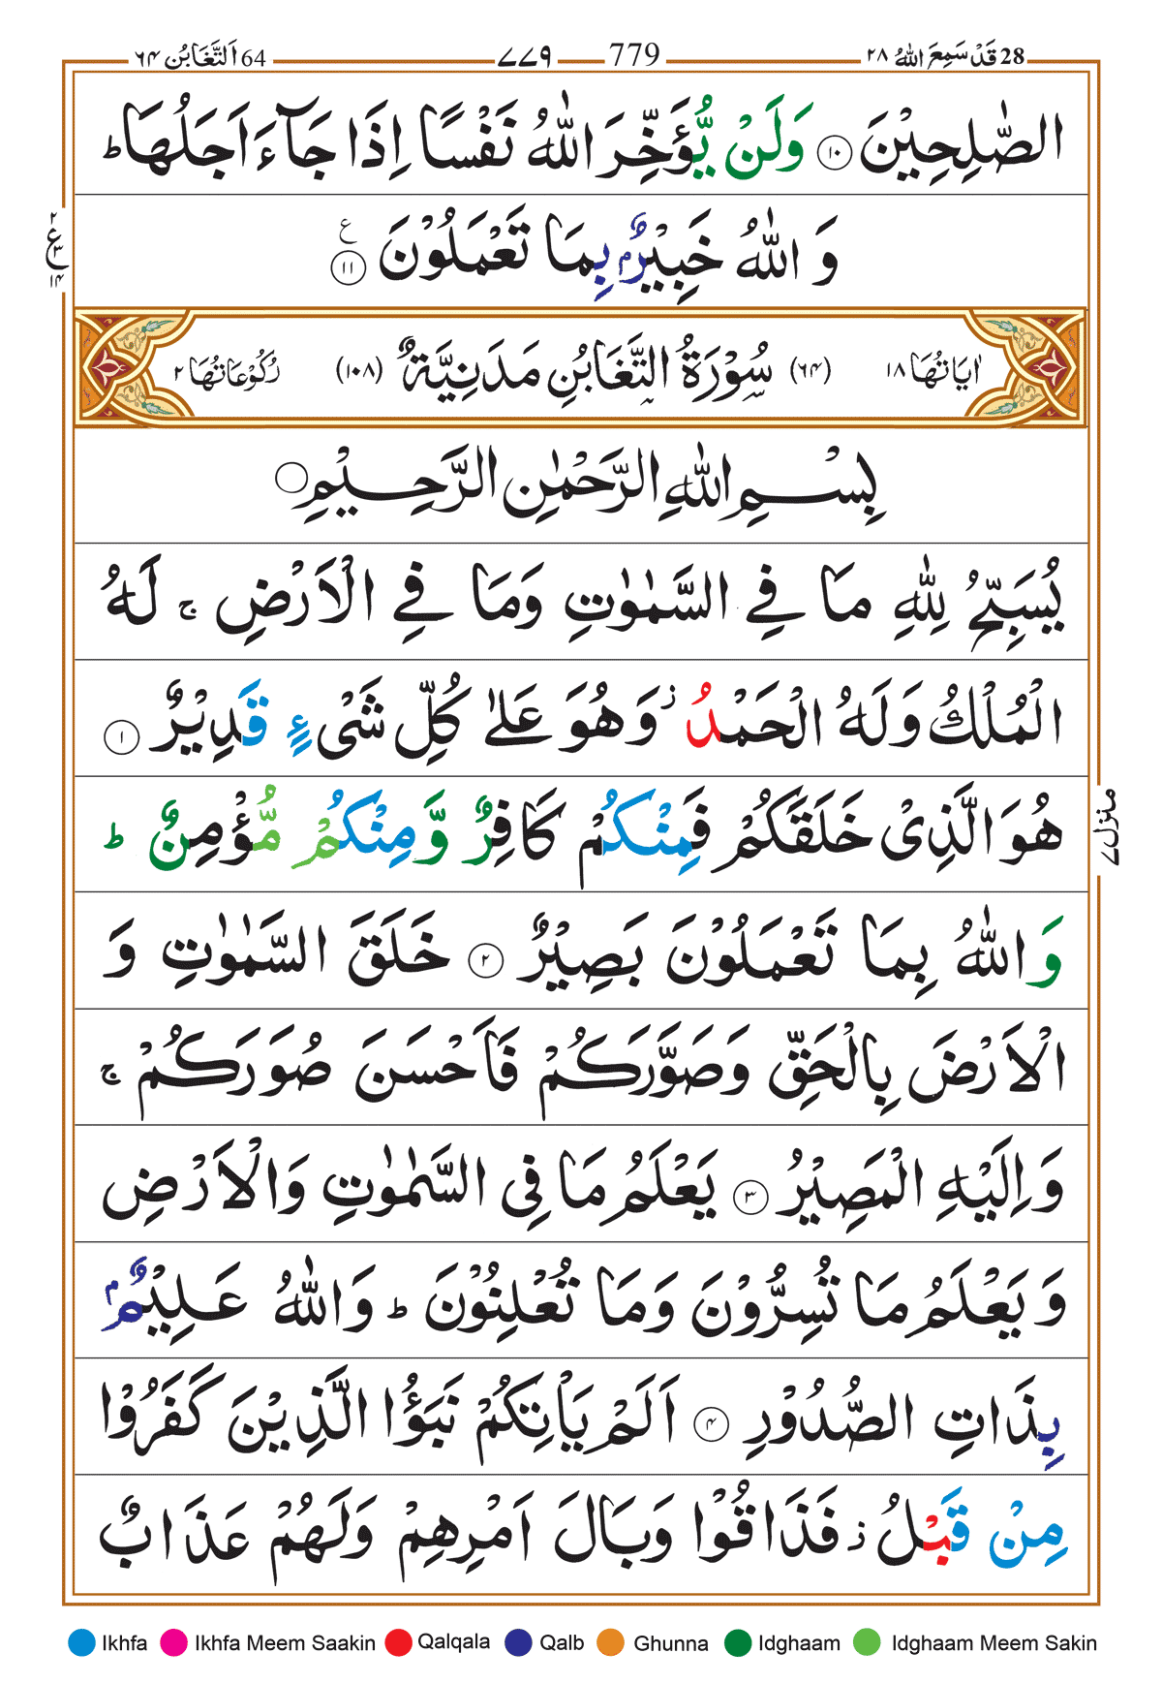 28 قَدْ سَمِعَ اللهُ ۲۸ 779 ۷۷۹ 64 اَلتَّغَابُن ۶۴
الصّٰلِحِيْنَ ۱۰ وَلَنْ يُّؤَخِّرَ اللّٰهُ نَفْسًا اِذَا جَآءَ اَجَلُهَا ؕ
وَ اللّٰهُ خَبِيْرٌۢ بِمَا تَعْمَلُوْنَ ۱۱ ع
۲ ع ۳ ۱۴
اٰيَاتُهَا ۱۸ (۶۴) سُوْرَةُ التَّغَابُنِ مَدَنِيَّةٌ (۱۰۸) رُكُوْعَاتُهَا ۲
بِسْمِ اللّٰهِ الرَّحْمٰنِ الرَّحِيْمِ
يُسَبِّحُ لِلّٰهِ مَا فِي السَّمٰوٰتِ وَمَا فِي الْاَرْضِ ۚ لَهُ
الْمُلْكُ وَلَهُ الْحَمْدُ ز وَهُوَ عَلٰى كُلِّ شَىْءٍ قَدِيْرٌ ۱
هُوَ الَّذِىْ خَلَقَكُمْ فَمِنْكُمْ كَافِرٌ وَّمِنْكُمْ مُّؤْمِنٌ ؕ
منزل ۷
وَاللّٰهُ بِمَا تَعْمَلُوْنَ بَصِيْرٌ ۲ خَلَقَ السَّمٰوٰتِ وَ
الْاَرْضَ بِالْحَقِّ وَصَوَّرَكُمْ فَاَحْسَنَ صُوَرَكُمْ ۚ
وَاِلَيْهِ الْمَصِيْرُ ۳ يَعْلَمُ مَا فِى السَّمٰوٰتِ وَالْاَرْضِ
وَ يَعْلَمُ مَا تُسِرُّوْنَ وَمَا تُعْلِنُوْنَ ؕ وَاللّٰهُ عَلِيْمٌۢ
بِذَاتِ الصُّدُوْرِ ۴ اَلَمْ يَاْتِكُمْ نَبَؤُا الَّذِيْنَ كَفَرُوْا
مِنْ قَبْلُ ز فَذَاقُوْا وَبَالَ اَمْرِهِمْ وَلَهُمْ عَذَابٌ
Ikhfa Ikhfa Meem Saakin Qalqala Qalb Ghunna Idghaam Idghaam Meem Sakin